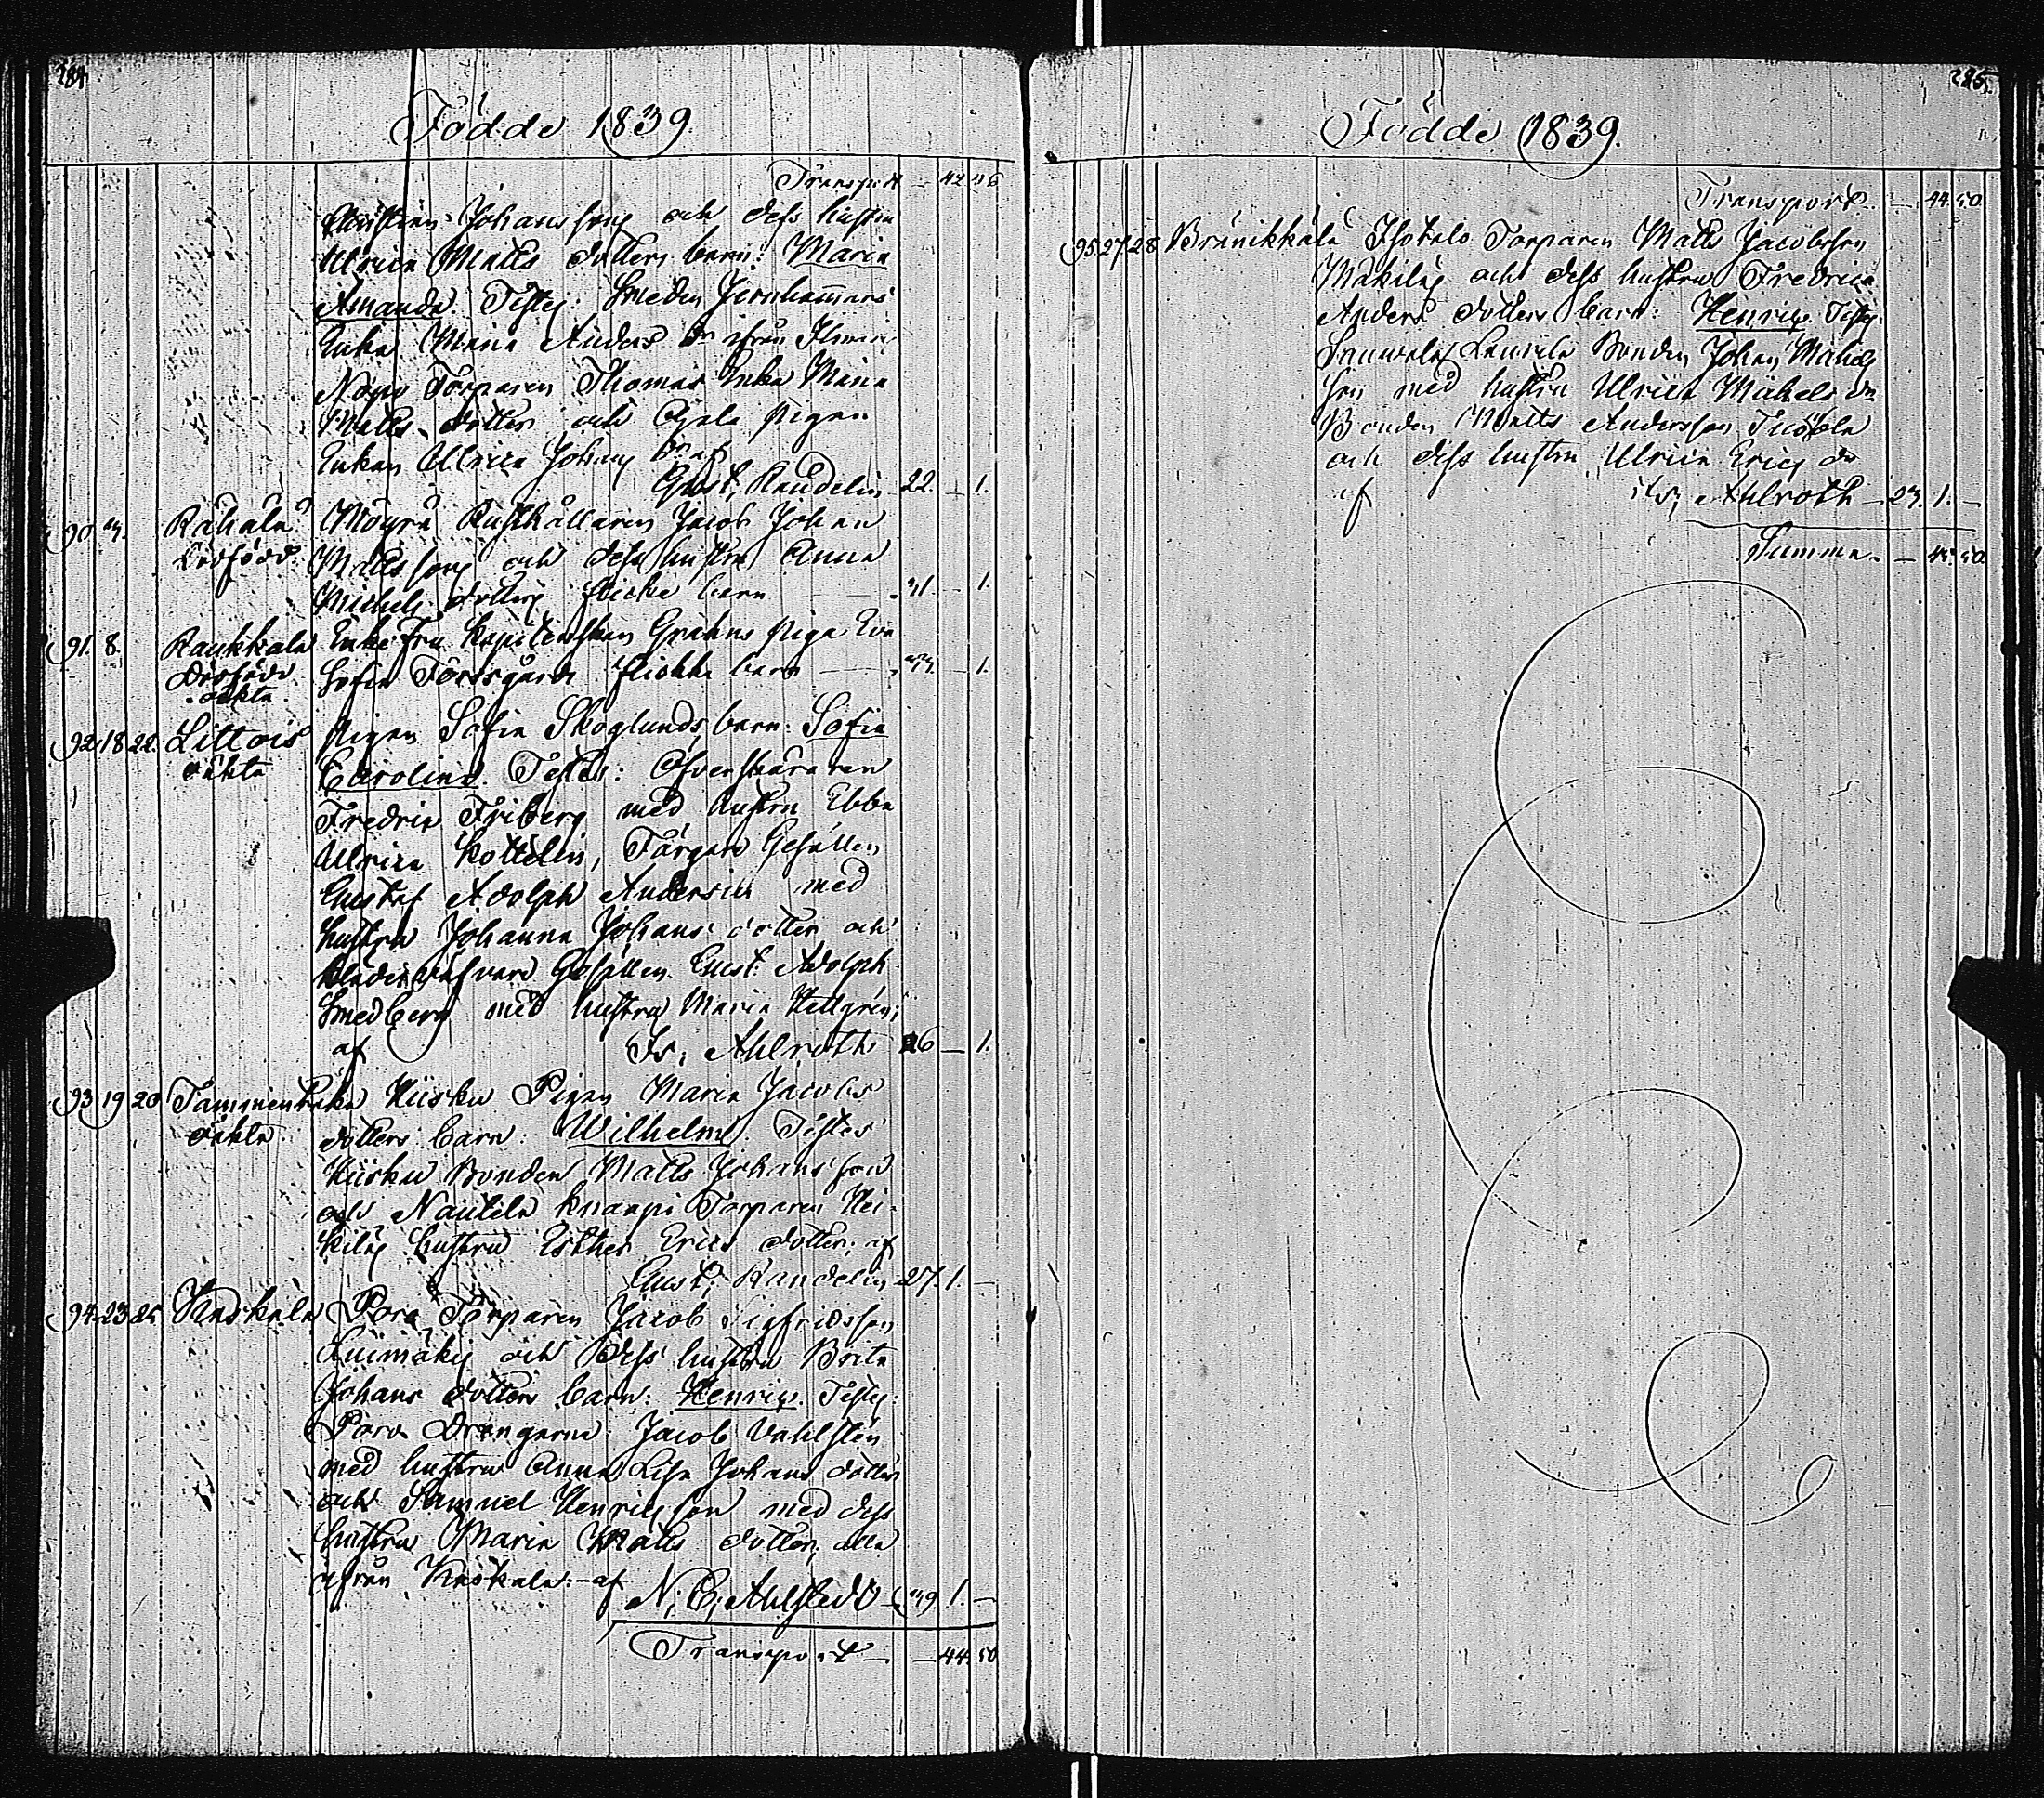 284
Födde 1839.
Transport — 42. 46
Christian Johanssons och dess hustru
Ulrica Matts dotters barn: Maria
Amanda. Testes: Smeden Jernhammars
Enka Maria Anders dr ifrån
Torparen Thomas Enka Maria
Matts dotter och Pigan
Enkan Ulrica Johans dr af
Gust. Randelin 22. — 1.
90. 4. Rähälä Möyrä Rusthållaren Jacob Johan
Dödfödd Mattssons och dess hustru Anna
Michels dotters flicke barn — 41. — 1.
91. 8. Raukkala Enke Fru Kapitenskan Grahns Piga Eva
Dödfödd Sofia Forssgårds flicke barn — 1.
oäkta
92. 18. 22. Littois Pigan Sofia Skoglunds barn: Sofia
oäkta Carolina. Testes: Öfverskäraren
Fredric Friberg med hustru Ebba
Ulrica Kottelin, Färgare Gesällen
Gustaf Adolph Andersin med
hustru Johanna Johans dotter och
Klädesväfvare Gesällen Gust. Adolph
Smedberg med hustru Maria Hellgrén;
af Is; Ahlroth 26 — 1.
93. 19. 20 Tammenkaka Hiisku Pigan Maria Jacobs
oäkta dotters barn: Wilhelm. Testes
Hiisku Bonden Matts Johansson
och Nautela Knaapi Torparen Hei-
kiläs hustru Esther Erics dotter; af
Gust. Randelin 27. 1. —
94. 23. 25. Kaskala Pora Torparen Jacob Sigfridsson
Luimäkis och dess hustru Brita
Johans dotters barn: Henric. Testes:
Pora Drängarne Jacob Vahlstén
med hustru Anna Lisa Johans dotter
och Samuel Henricsson med dess
hustru Maria Matts dotter, alla
ifrån Kaskala: — af
N. C. Ahlstedt — 39 1. —
Transport — 44. 50
285.
Födde 1839.
Transport — 44. 50
95. 27. 28 Bränikkälä Isotalo Torparen Matts Jacobsson
Mäkiläs och dess hustru Fredrica
Anders dotters barn: Henric. Testes:
Sauvala Laurila Bonden Johan Michels
son med hustru Ulrica Michels dr
Bonden Matts Andersson Tuohola
och dess hustru Ulrica Erics dr
af Is; Ahlroth — 23. 1. —
Summa — 45. 50.